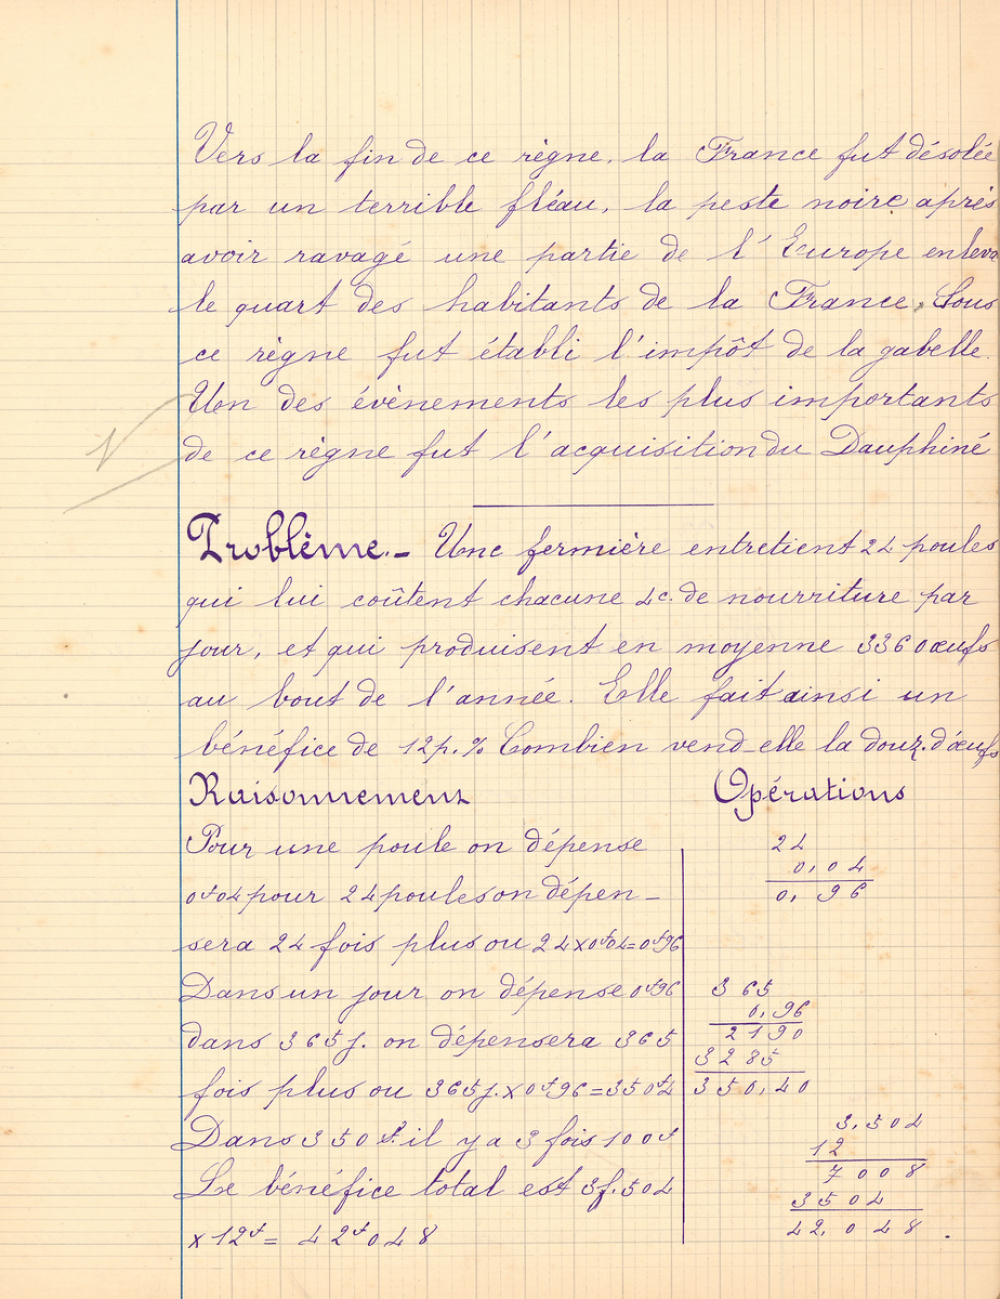 Vers la fin de ce règne, la France fut désolée
par un terrible fléau, la peste noire après
avoir ravagé une partie de l'Europe enleva
le quart des habitants de la France. Sous
ce règne fut établi l'impôt de la gabelle.
Un des évènements les plus importants
de ce règne fut l'acquisition du Dauphiné
Problème.- Une fermière entretient 24 poules
qui lui coûtent chacune 4c. de nourriture par
jour, et qui produisent en moyenne 3360 œufs
au bout de l'année. Elle fait ainsi un
bénéfice de 12p.% Combien vend-elle la douz. d'œufs
Raisonnement Opérations
Pour une poule on dépense
0f04 pour 24 poules on dépen-
sera 24 fois plus ou 24x0f04=0f96
Dans un jour on dépense 0f96
dans 365j. on dépensera 365
fois plus ou 365j.x0f96=350f4
Dans 350f. il y a 3 fois 100f
Le bénéfice total est 3f.504
x12f= 42f048
24
0,04
0,96
365
0,96
2190
3285
350,40
3,504
12
7008
3504
42,048.